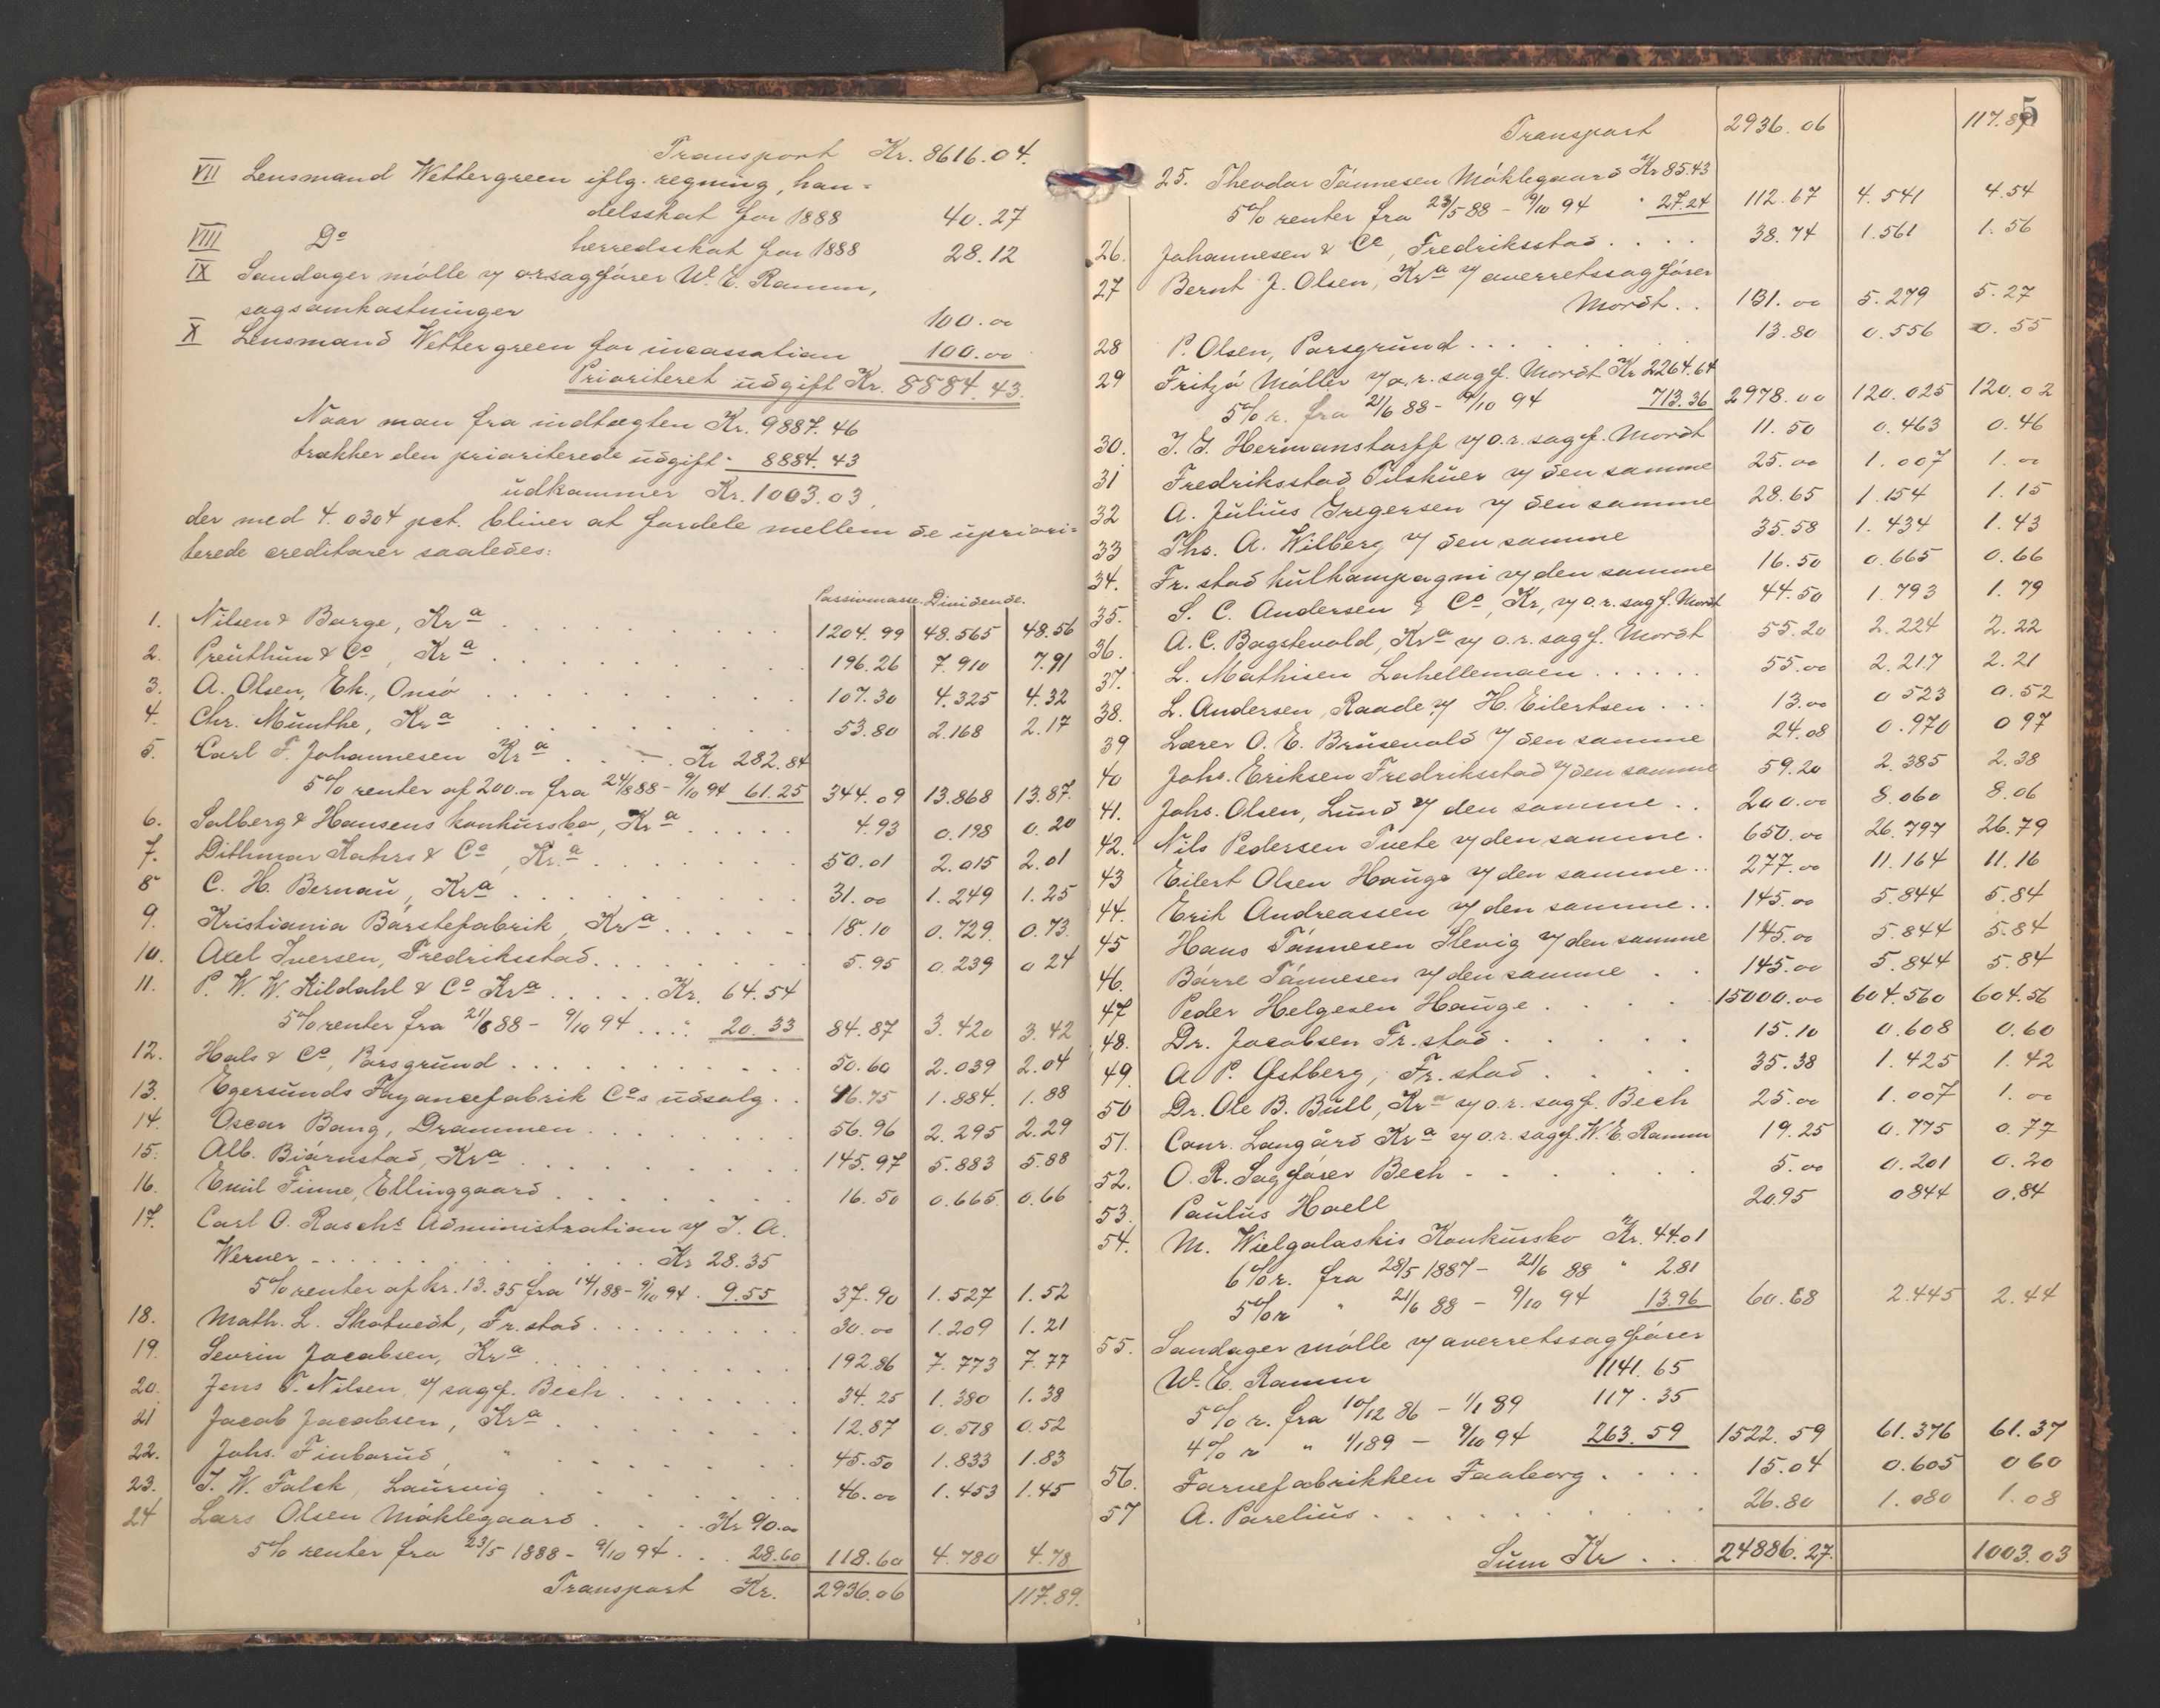 Transport Kr. 8616.04.
VII Lensmand Wettergreen iflg. regning, han-
delsskat for 1888 40.27
VIII Do herredsskat for 1888 28.12
IX Sandager mølle v/ o.r.sagfører W. E. Ramm,
sagsomkostninger 100.00
X Lensmand Wettergreen for incassation 100.00
Prioriteret udgift Kr. 8884.43.
Naar man fra indtægten Kr. 9887.46
trækker den prioriterede udgift " 8884.43
udkommer Kr. 1003.03,
der med 4.0304 pct. bliver at fordele mellem de upriori-
terede creditorer saaledes:
Passivmasse. Dividende.
1. Nilsen & Borge, Kra 1204.99 48.565 48.56
2. Preuthun & Co, Kra 196.26 7.910 7.91
3. A. Olsen, Ek., Onsø 107.30 4.325 4.32
4. Chr. Munthe, Kra 53.80 2.168 2.17
5. Carl F. Johannesen Kra Kr 282.84
5% renter af 200.00 fra 24/8 88 - 9/10 94 61.25 344.09 13.868 13.87.
6. Solberg & Hansens konkursbo, Kra 4.93 0.198 0.20
7. Dithmar Kahrs & Co, Kr.a 50.01 2.015 2.01
8 C. H. Bernau, Kra 31.00 1.249 1.25
9. Kristiania Børstefabrik, Kra 18.10 0.729 0.73
10. Axel Iversen, Fredriksstad. 5.95 0.239 0 24
11. P. W. W. Kildahl & Co Kra Kr. 64.54
5% renter fra 21/6 88 - 9/10 94 20.33 84.87 3.420 3.42
12. Hals & Co, Porsgrund 50.60 2.039 2.04
13. Egersunds Fayancefabrik Co.s udsalg 46.75 1.884. 1.88
14. Oscar Bang, Drammen 56.96 2.295 2.29
15. Alb. Biørnstad, Kra 145.97 5.883 5.88
16. Emil Finne, Ellinggaard 16.50 0.665 0.66
17. Carl O. Raschs Administration v/ J. A.
Werner Kr 28.35
5% renter af kr. 13.35 fra 14/1 88 - 9/10 94 9.55 37.90 1.527 1.52
18. Math. L. Skotvedt, Fr.stad 30.00 1.209 1.21
19. Sevrin Jacobsen, Kra 192.86 7.773 7.77
20. Jens T. Nilsen v/ sagf. Bech 34.25 1.380 1.38
21 Jacob Jacobsen, Kra 12.87 0.518 0.52
22. Johs. Finborud, " 45.50 1.833 1.83
23. J. W. Falck, Laurvig 46.00 1.453 1.45
24 Lars Olsen Møklegaard Kr 90.00
5% renter fra 23/5 1888 - 9/10 94 28.60 118.60 4.780 4.78
Transport Kr. 2936.06 117.89.
5
Transport 2936.06 117.89
25. Theodor Tønnesen Møklegaard Kr 85.43
5% renter fra 23/5 88 - 9/10 94 " 27.24 112.67 4.541 4.54
26. Johannesen & Co, Fredriksstad 38.74 1.561 1.56
27 Bernt J. Olsen, Kra v/ overretssagfører
Mordt 131.00 5.279 5.27
28 P. Olsen, Porsgrund 13.80 0.556 0.55
29 Fritzø Møller v/ o.r.sagf. Mordt Kr 2264.64
5% r. fra 21/6 88 - 9/10 94 713.36 2978.00 120.025 120.02
30. J. G. Hermanstorff v/ o.r.sagf. Mordt 11.50 0.463 0.46
31 Fredriksstad Tilskuer v/ den samme 25.00 1.007 1.00
32 A. Julius Gregersen v/ den samme 28.65 1.154 1.15
33 Ths. A. Wilberg v/ den samme 35.58 1.434 1.43
34. Fr.stad kulkompagni v/ den samme 16.50 0.665 0.66
35. S. C. Andersen & Co, Kr, v/ o.r.sagf. Mordt 44.50 1.793 1.79
36. A. C. Bagstevold, Kra v/ o.r.sagf. Mordt 55.20 2.224 2.22
37. L. Mathisen Lahellemoen 55.00 2.217 2.21
38. L. Andersen, Raade v/ H. Eilertsen 13.00 0 523 0.52
39 Lærer O. E. Brusevold v/ den samme 24.08 0.970 0 97
40 Johs. Eriksen Fredriksstad v/ den samme 59.20 2.385 2.38
41. Johs. Olsen, Lund v/ den samme 200.00 8.060 8.06
42. Nils Pedersen Tvete v/ den samme. 650.00 26.797 26.79
43 Eilert Olsen Hauge v/ den samme 277.00 11.164 11.16
44. Erik Andreassen v/ den samme 145.00 5.844 5.84
45 Hans Tønnesen Slevig v/ den samme 145.00 5.844 5.84
46. Børre Tønnesen v/ den samme 145.00 5.844 5.84
47 Peder Helgesen Hauge 15000.00 604.560 604.56
48. Dr. Jacobsen Fr.stad 15.10 0.608 0.60
49. A. P. Østberg, Fr.stad 35.38 1.425 1.42
50 Dr. Ole B. Bull, Kra v/ o.r.sagf. Bech 25.00 1.007 1.00
51. Conr. Langård Kra v/ o.r.sagf. W. E. Ramm 19.25 0.775 0.77
52. O. R. Sagfører Bech 5.00 0.201 0.20
53. Paulus Hoell 20.95 0844 0.84
54. M. Wielgolaskis Konkursbo Kr. 44.01
6% r. fra 28/5 1887 - 21/6 88 " 2.81
5% r " 21/6 88 - 9/10 94 13.96 60.68 2.445 2.44
55. Sandager mølle v/ overretssagfører
W. E. Ramm 1141.65
5% r. fra 10/12 86 - 1/1 89 117.35
4% r " 1/1 89 - 9/10 94 263.59 1522.59 61.376 61.37
56. Farvefabrikken Faaborg 15.04 0.605 0 60
57 A. Parelius 26.80 1.080 1.08
Sum Kr 24886.27. 1003.03